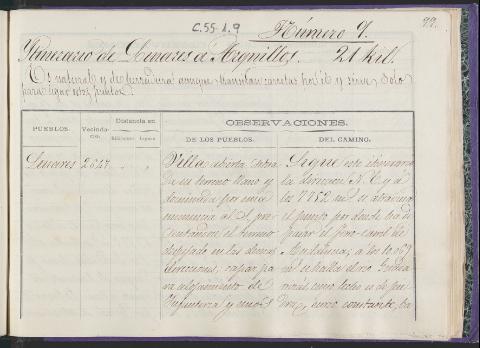 C.55-1.9
Número 9.
99.
Itinerario de Linares á Arquillos. 21 Kil.
Es natural y de herradura aunque transitan carretas por él y sirve solo
para ligar estos pueblos.
PUEBLOS.
Vecindario.
Distancia en
Kilómetros. Leguas.
OBSERVACIONES.
DE LOS PUEBLOS.
DEL CAMINO.
Linares
2647
" "
Villa abierta, situa
da en terreno llano y
dominada por una
eminencia al S. pre
sentandose el terreno
despejado en las demas
direcciones, capaz pa
ra alojamiento de
Infanteria y
Sigue este itinerario
la direccion N.E. y á
los 7752 m.s se atraviesa
el punto por donde ha de
pasar el ferro-carril de
Andalucia; á los 10.069
m.s se halla el rio Guada
cuyo lecho es de pie
dra, curso constante,